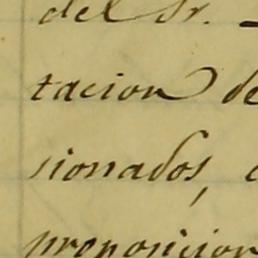 del Sr.
tacion de
sionados,
proposicion